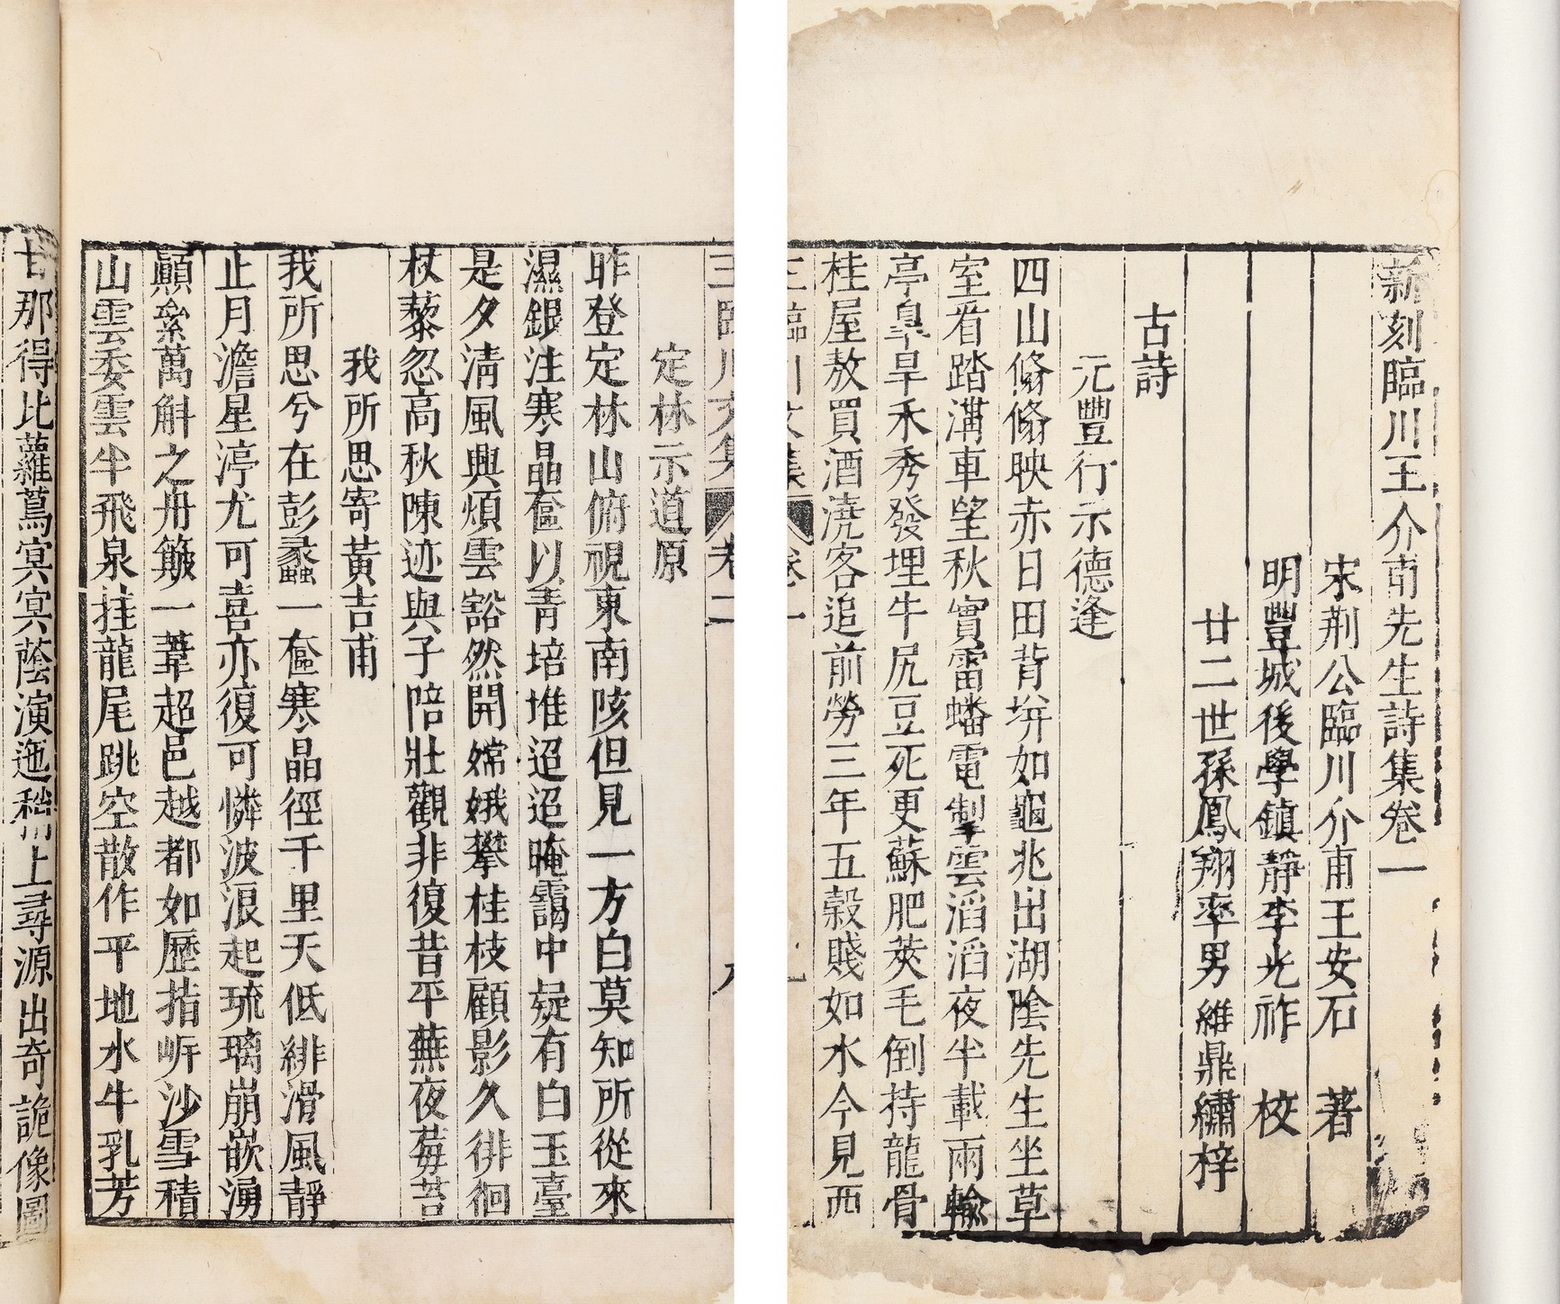 新刻臨川王介甫先生詩集卷一
宋荆公臨川介甫王安石　著
明豐城後學鎮靜李光祚　校
廿二世孫鳳翔率男維鼎繡梓
古詩
元豐行示德逢
四山翛翛映赤日田背坼如龜兆出湖陰先生坐草
室看踏溝車望秋實雷蟠電掣雲滔滔夜半載雨輸
亭皐旱禾秀發埋牛尻豆死更蘇肥莢毛倒持龍骨
桂屋敖買酒澆客追前勞三年五穀賤如水今見西
王臨川文集 卷一
王臨川文集 卷二 八
定林示道原
昨登定林山俯視東南陔但見一方白莫知所從來
濕銀注寒晶奩以青培堆迢迢晻靄中疑有白玉臺
是夕清風興煩雲豁然開嫦娥攀桂枝顧影久徘徊
杖藜忽高秋陳迹與子陪壯觀非復昔平蕪夜莓苔
我所思寄黃吉甫
我所思兮在彭蠡一奩寒晶徑千里天低緋滑風靜
止月澹星渟尤可喜亦復可憐波浪起琉璃崩嵌湧
顛纍萬斛之舟簸一葦超邑越都如歷指岍沙雪積
山雲委雲半飛泉挂龍尾跳空散作平地水牛乳芳
甘那得比蘿蔦冥冥蔭演迤稽川上尋源出奇詭像圖